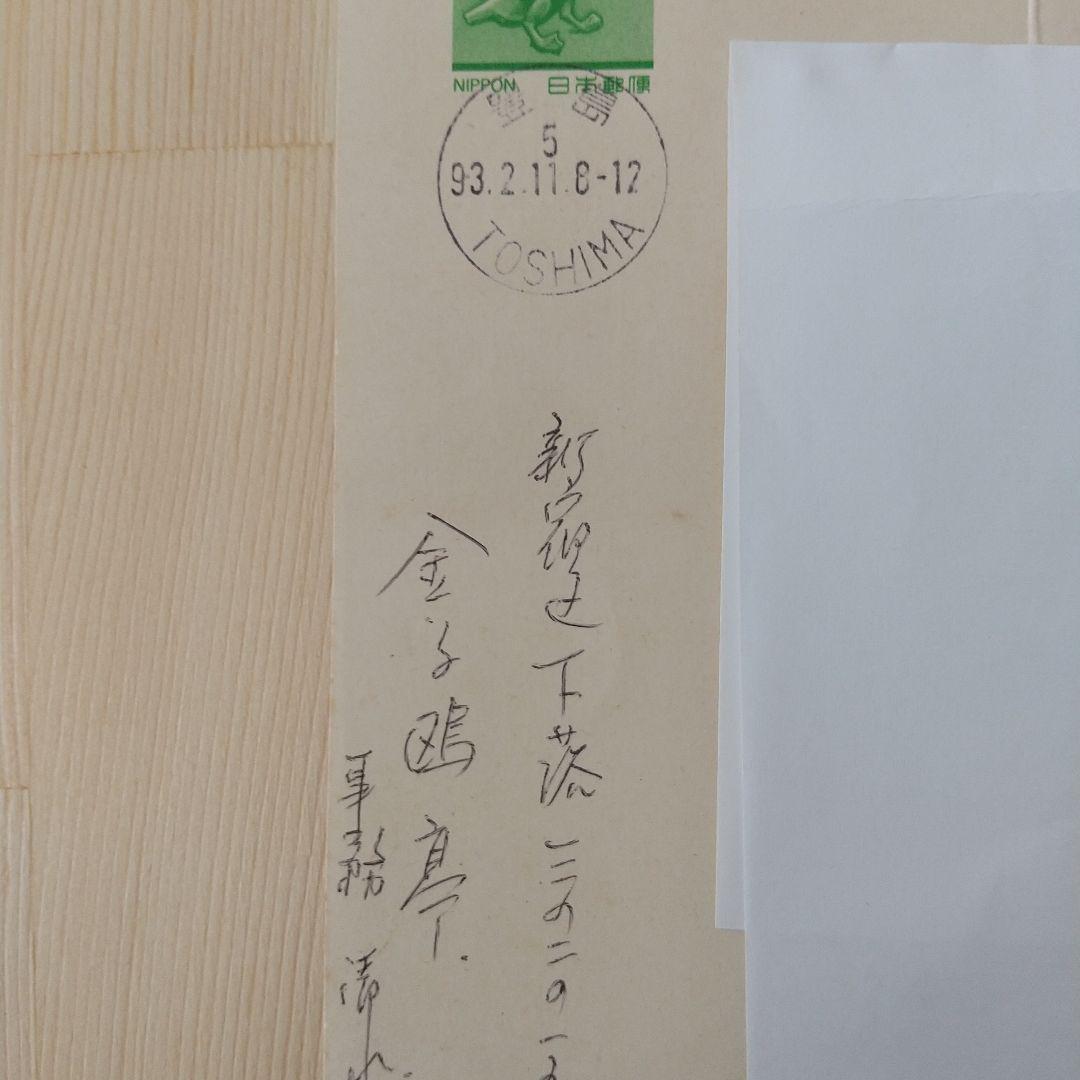 NIPPON 日本郵便
豊島
5
93.2.11.8-12
TOSHIMA
新宿区下落
金子鴎亭
事務